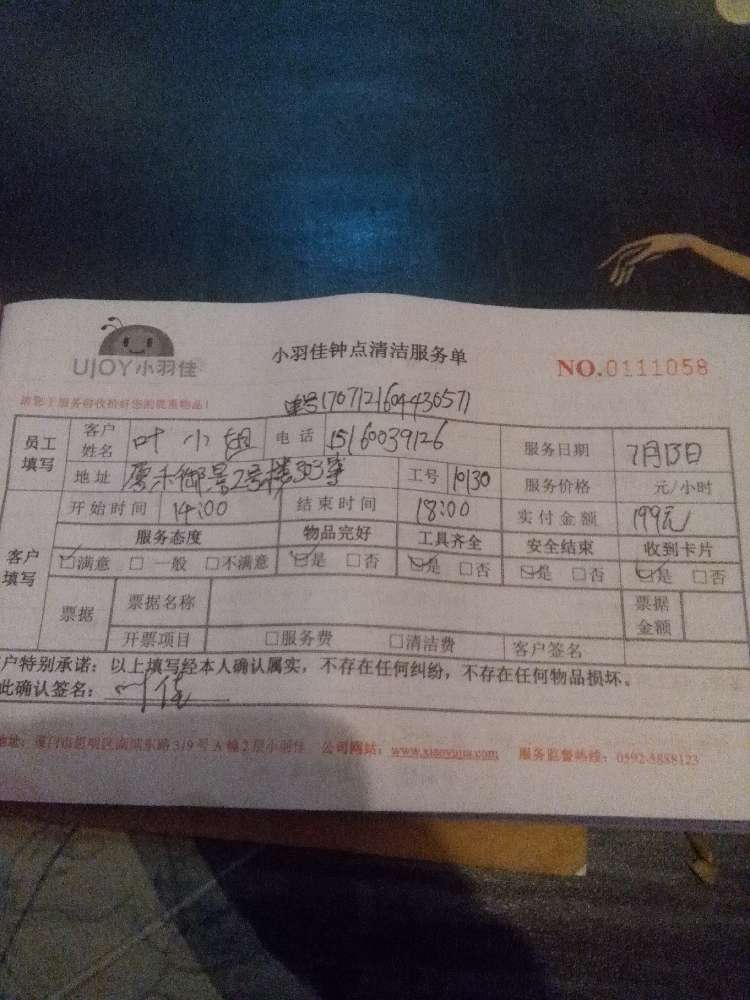 UJOY小羽佳
小羽佳钟点清洁服务单
NO.0111058
请您于服务前收拾好您的贵重物品！
单号170712164430571
员工填写 客户姓名 叶小姐 电话 15160039126 服务日期 7月13日
地址 厦禾御景2号楼303室 工号 10130 服务价格 元/小时
客户填写 开始时间 14:00 结束时间 18:00 实付金额 199元
服务态度 物品完好 工具齐全 安全结束 收到卡片
☑满意 □一般 □不满意 ☑是 □否 ☑是 □否 ☑是 □否 ☑是 □否
票据 票据名称 票据金额
开票项目 □服务费 □清洁费 客户签名
户特别承诺：以上填写经本人确认属实，不存在任何纠纷，不存在任何物品损坏。
此确认签名：叶佳
地址：厦门市思明区南湖东路319号A幢2层小羽佳 公司网站：www.xiaoyujia.com 服务监督热线：0592-5888123